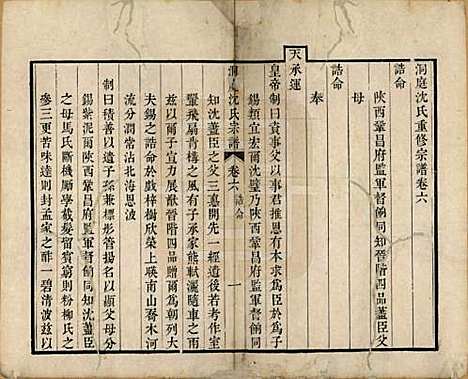 洞庭沈氏重修宗譜卷六
誥命
陝西鞏昌府監軍督餉同知晉階四品藎臣父
母
誥命
奉
天承運
皇帝制曰資事父以事君推恩有本求為臣於為子
錫類宜宏爾沈璧乃陝西鞏昌府監軍督餉同
洞庭沈氏宗譜 卷六 誥命 一
知沈藎臣之父三惠開先一經遺後若考作室
翬飛肩青構之風有子承家熊軾灑隨車之雨
茲以爾子宣力展猷晉階四品贈爾為朝列大
夫錫之誥命於戲梓樹欣榮上暎南山喬木河
流分潤常沾北海恩波
制曰積善以遺子孫兼標形管揚名以顯父母分
錫紫泥爾陝西鞏昌府監軍督餉同知沈藎臣
之母馬氏斷機勵學截髮留賓窮則粉柳氏之
參三更苦味達則封孟家之酢一碧清波茲以